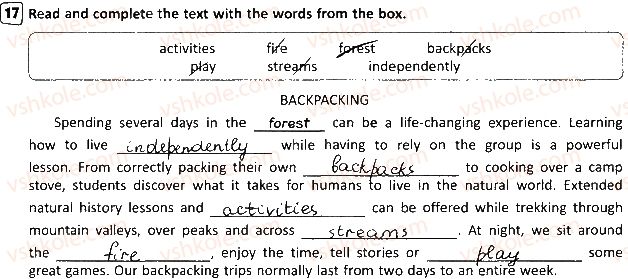 17 Read and complete the text with the words from the box.
activities fire forest backpacks
play streams independently
BACKPACKING
Spending several days in the forest can be a life-changing experience. Learning
how to live independently while having to rely on the group is a powerful
lesson. From correctly packing their own backpacks to cooking over a camp
stove, students discover what it takes for humans to live in the natural world. Extended
natural history lessons and activities can be offered while trekking through
mountain valleys, over peaks and across streams. At night, we sit around
the fire, enjoy the time, tell stories or play some
great games. Our backpacking trips normally last from two days to an entire week.